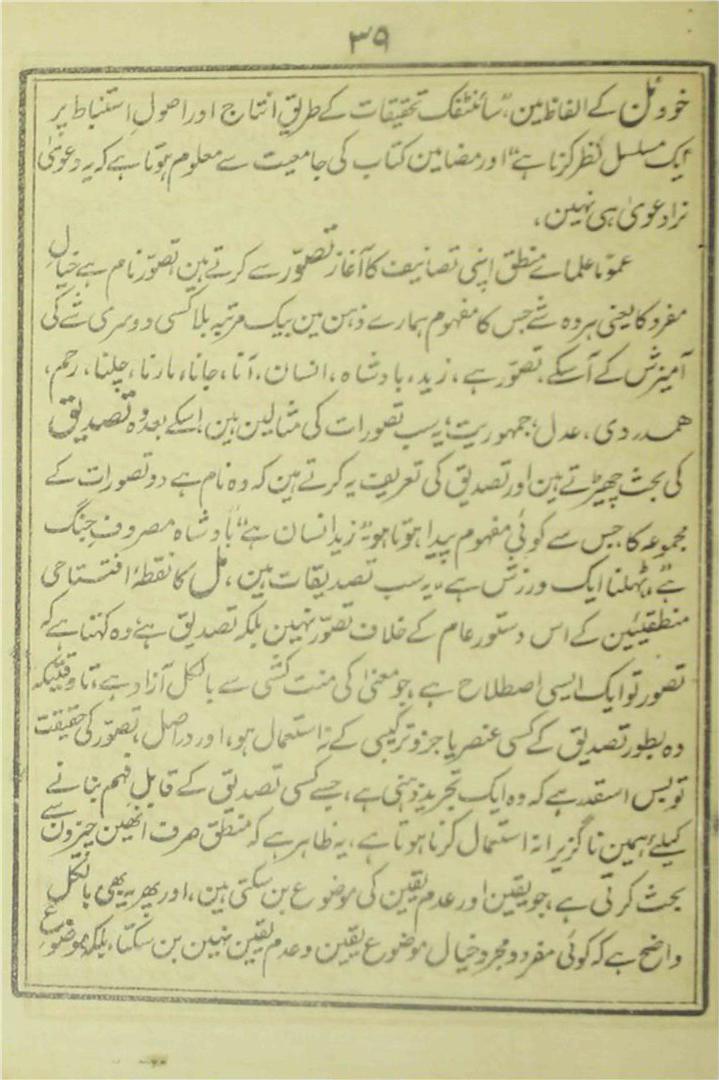 ۳۹
خود مل کے الفاظ مین، "سائنٹفک تحقیقات کے طریق انتاج اور اصول استنباط پر
ایک مسلسل نظر کرنا ہے" اور مضامین کتاب کی جامعیت سے معلوم ہوتا ہے کہ یہ دعویٰ
نرا دعویٰ ہی نہین،
عموماً علمائے منطق اپنی تصانیف کا آغاز تصوّر سے کرتے ہین، تصوّر نام ہے خیالِ
مفرد کا یعنی ہر وہ شے جس کا مفہوم ہمارے ذہن مین بیک مرتبہ بلا کسی دوسری شے کی
آمیزش کے آسکے، تصوّر ہے، زید، بادشاہ، انسان، آنا، جانا، مارنا، چلنا، رحم،
ہمدردی، عدل، جمہوریت، یہ سب تصورات کی مثالین ہین، اسکے بعد وہ تصدیق
کی بحث چھیڑتے ہین اور تصدیق کی تعریف یہ کرتے ہین کہ وہ نام ہے دو تصورات کے
مجموعہ کا جس سے کوئی مفہوم پیدا ہوتا ہو، "زید انسان ہے" "بادشاہ مصروفِ جنگ
ہے"، "ٹہلنا ایک ورزش ہے"، یہ سب تصدیقات ہین، مل کا نقطۂ افتتاحی
منطقیئین کے اس دستور عام کے خلاف تصوّر نہین بلکہ تصدیق ہے، وہ کہتا ہے کہ
تصور تو ایک ایسی اصطلاح ہے، جو معنیٰ کی منت کشی سے بالکل آزاد ہے، تاوقتیکہ
وہ بطور تصدیق کے کسی عنصر یا جزو ترکیبی کے نہ استعمال ہو، اور در اصل، تصوّر کی حقیقت
تو بس اسقدر ہے کہ وہ ایک تجرید ذہنی ہے، جسے کسی تصدیق کے قابل فہم بنانے
کیلئے ہمین ناگزیرانہ استعمال کرنا ہوتا ہے، یہ ظاہر ہے کہ منطق صرف انھین چیزون سے
بحث کرتی ہے، جو یقین اور عدم یقین کی موضوع بن سکتی ہین، اور پھر یہ بھی بالکل
واضح ہے کہ کوئی مفرد و مجرد خیال موضوع یقین و عدم یقین نہین بن سکتا، بلکہ موضوعِ